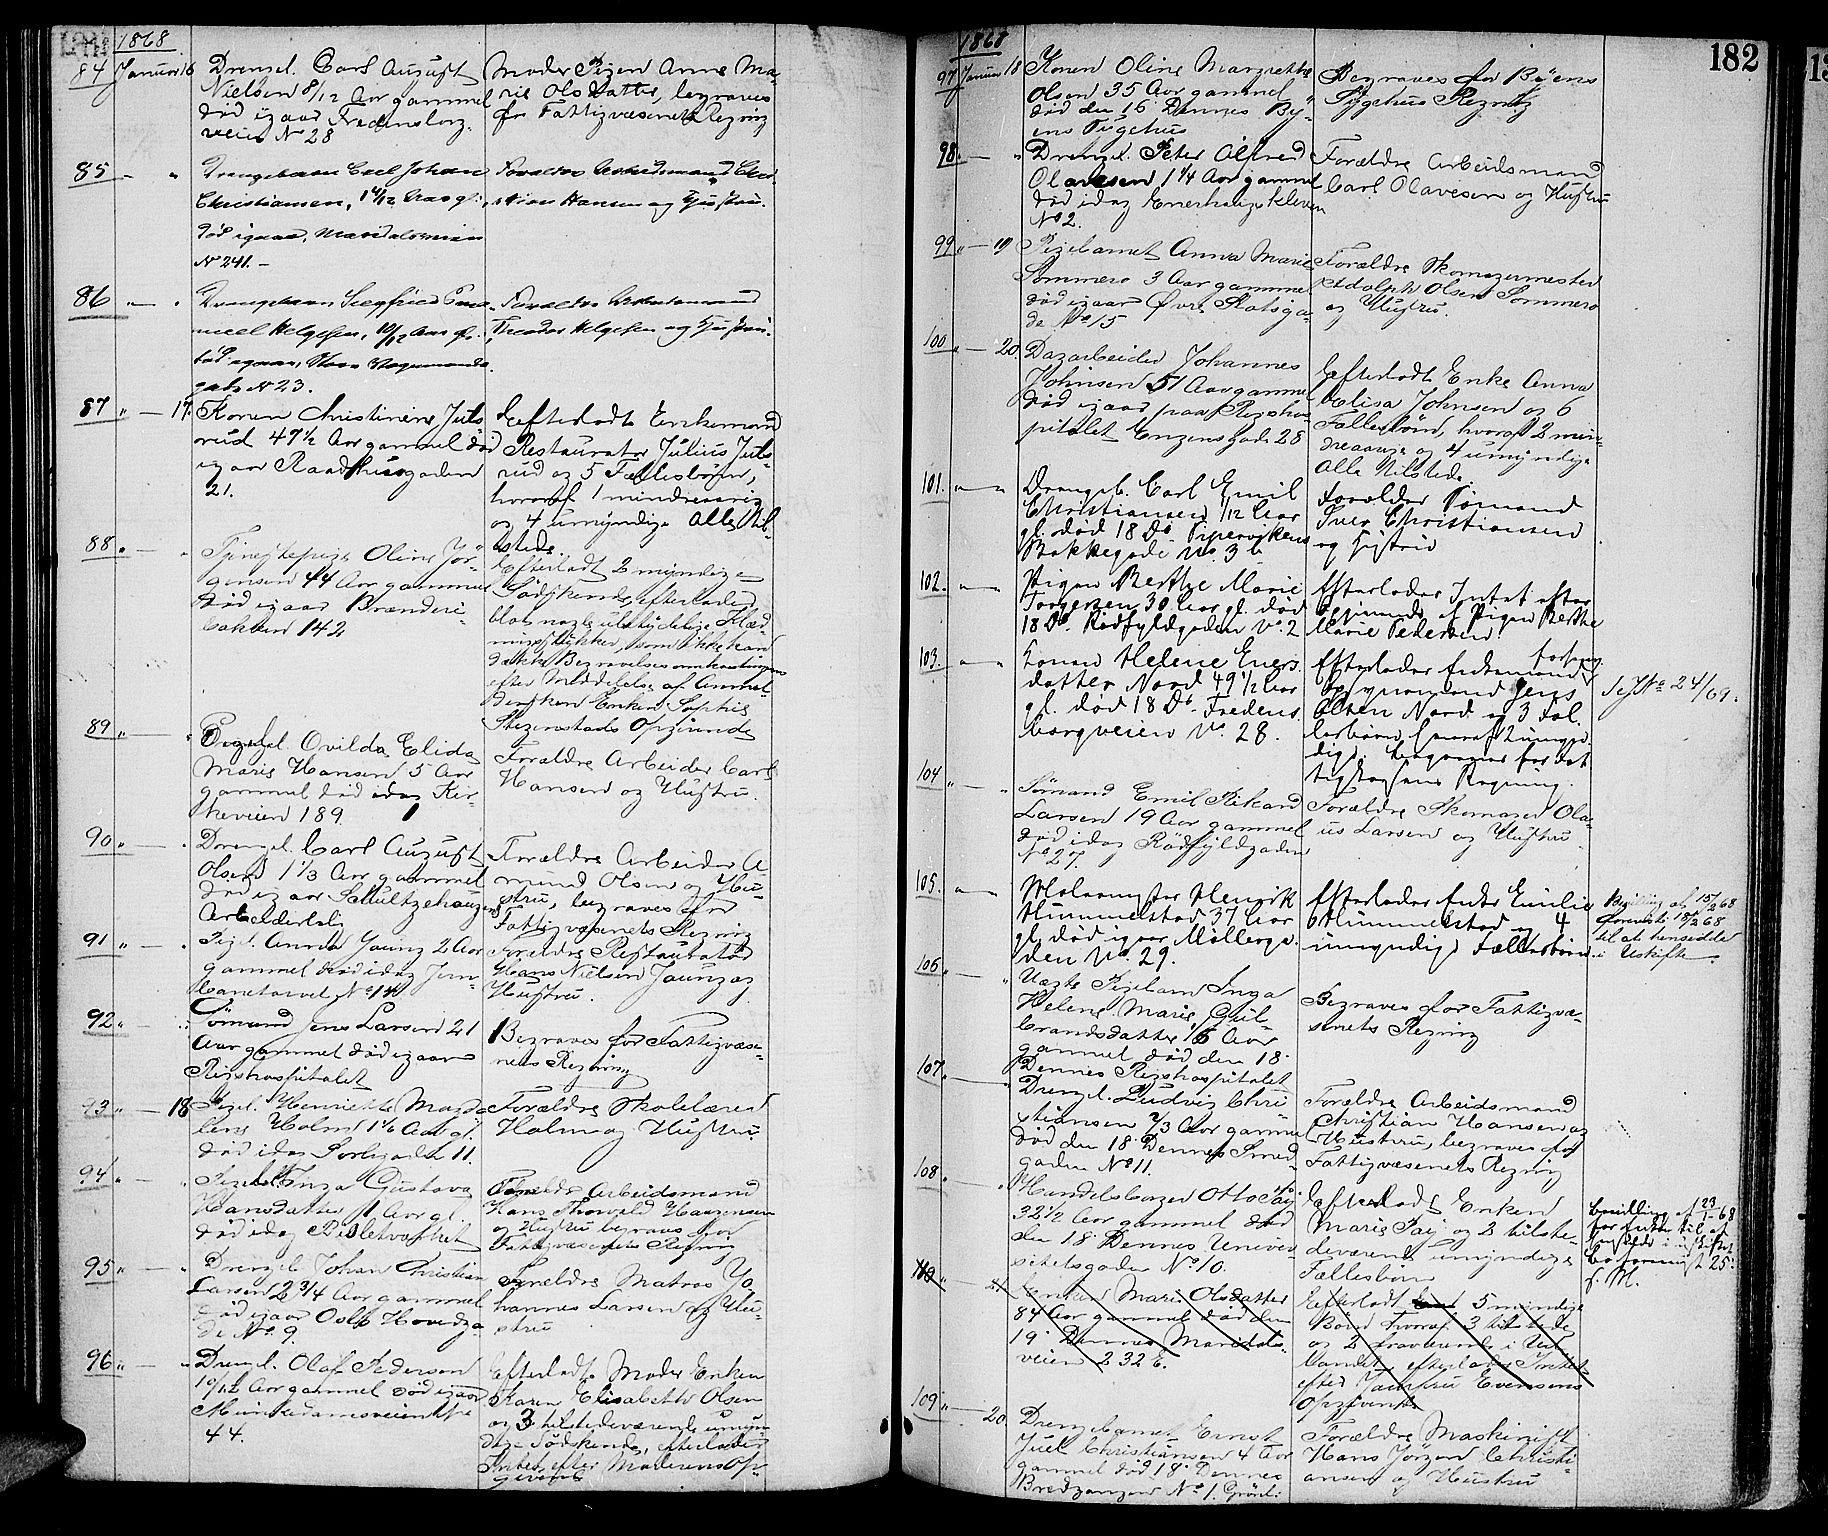 1868
84 Januar 16 Drengeb. Carl August
Nielsen 8/12 Aar gammel
død igaar Fredensborg-
veien No 28
Moder Pigen Anne Ma-
rie Olsdatter, begraves
for Fattigvæsenets Regning
85 Drengebarn Carl Johan
Christiansen, 1 4/12 Aar gl.,
død igaar, Maridalsveien
No 241.-
Forældre Arbeidsmand
Hansen og Hustru.
86 Drengebarn Siegfried
Helgesen, 10/12 Aar gl.
død igaar,
gade No 23.
Forældre Arbeidsmand
Theodor Helgesen og Hustru.
87 17. Konen Christiane Juls-
rud 47 1/2 Aar gammel død
igaar Raadhusgaden
21.
Efterladt Enkemand
Restauratør Julius Juls-
rud og 5 Fællesbørn,
hvoraf 1 mindreaarig
og 4 umyndige Alle til-
stede.
88. Tjenestepige Oline Jør-
gensen 44 Aar gammel
død igaar Brænderi-
bakken 142
Efterladt 2 myndige
Sødskende, efterladed
blot nogle ubetydelige Klæd-
ningsstykker, som ikke kan
dække Begravelsesomkostningen
efter Meddelelse af Anmel-
dersken Enken Sophie
Stegenstads Opgivende
89 Pigeb. Ovilda Elida
Marie Hansen 5 Aar
gammel død idag Kir-
keveien 189.
Forældre Arbeider Carl
Hansen og Hustru.
90 Drengeb. Carl August
Olsen 1 1/3 Aar gammel
død igaar Schultzehaugen
Arbeiderbolig
Forældre Arbeider A-
mund Olsen og Hu-
stru, begraves for
Fattigvæsenets Regning
91 Pigeb. Anna Jaung 2 Aar
gammel død idag Jern-
banetorvet No 14
Forældre Restauratør
Hans Nielsen Jaung og
Hustru.
92 Sømand Jens Larsen 21
Aar gammel død igaar
Rigshospitalet
Begraves for Fattigvæse-
nets Regning
93 18 Pigeb. Henriette Magda-
lene Holm 1 1/6 Aar gl.
død idag Storgaden 11.
Forældre Skolelærer
Holm og Hustru.
94 Pigeb. Inga Gustava
Hansdatter 1 Aar gl.
død idag Pilletvaskeit
Forældre Arbeidsmand
Hans Thorvald Haagensen
og Hustru begraves for
Fattigvæsenets Regning
95 Drengeb. Johan Christian
Larsen 2 3/4 Aar gammel
død igaar Oslo Hovedga-
de No 9.
Forældre Matros Jo-
hannes Larsen og Hu-
stru
96 Drengeb. Olaf Pedersen
10/12 Aar gammel død igaar
Munkedamsveien No
44.
Efterladt Moder Enken
Karen Elisabeth Olsen
og 3 tilstedeværende umyn-
dige Sødskende, efterlader
Intet efter Moderens Op-
givende
1868
182
97 Januar 18 Konen Oline Margrethe
Olsen 35 Aar gammel
død den 16 Dennes By-
ens Sygehus
Begraves for Byens
Sygehus Regning
98. Drengeb. Peter Alfred
Olavesen 1 1/4 Aar gammel
død idag Enerhaugskleven
No 2.
Forældre Arbeidsmand
Carl Olavesen og Hustru
99 19 Pigebarnet Anna Marie
Sommero 3 Aar gammel
død igaar Øvre Slotsga-
de No 15
Forældre Skomagermester
Adolph Olsen Sommero
og Hustru.
100 20. Dagarbeider Johannes
Johnsen 51 Aar gammel
død igaar paa Rigshos-
pitalet Enggens Gade 28
Efterladt Enke Anna
Elisa Johnsen og 6
Fællesbørn, hvoraf 2 min-
dreaarige og 4 umyndige
Alle tilstede.
101. Drengeb. Carl Emil
Christiansen 1/12 Aar
gl. død 18 Ds Pipervikens
Bakkegade No 3 b
Forældre Sømand
Iver Christiansen
og Hustru
102. Pigen Berthe Marie
Torgersen 30 Aar gl. død
18 Ds. Rødfyldgaden No. 2
Efterlader Intet efter
Opgivende af Pigen Berthe
Marie Pedersen
103. Konen Helene Evers-
datter Nord 49 1/2 Aar
gl. død 18 Ds. Fredens-
borgveien No. 28.
Efterlader Enkemand
Jens
Olsen Nord og 3 Fæl-
lesbørn, hvoraf 2 umyn-
dige, begraves for Fat-
tigkassens Regning.
24/69.
104 Sømand Emil Rikard
Larsen 19 Aar gammel
død idag Rødfyldgaden
No 27.
Forældre Skomager Ola-
us Larsen og Hustru.
105. Malermester Henrik
Hummelstad 37 Aar
gl. død igaar Møllerga-
den No. 29.
Efterlader Enke Emilie
Hummelstad og 4
umyndige Fællesbørn.
Bevilling af 15/2 68
forevist 18/2 68
til at hensidde
i Uskifte
106 Uægte Pigebarn Inga
Helene Marie Gul-
brandsdatter 1/6 Aar
gammel død den 18.
Dennes Rigshospitalet
Begraves for Fattigvæ-
senets Regning
107. Drengeb. Ludvig Chri-
stiansen 2/3 Aar gammel
død den 18 Dennes Smed-
gaden No 11.
Forældre Arbeidsmand
Christian Hansen og
Hustru, begraves for
Fattigvæsenets Regning
108. Handelsborger Otto Saij
32 1/2 Aar gammel død
den 18 Dennes Univer-
sitetsgaden No 10.
Efterladt Enken
Marie Saij og 2 tilste-
deværende umyndige
Fællesbørn
Bevilling af 23/1-68
for Enken til at
hensidde i uskiftet
Bo forevist 25.
s. M.
110 21 Enken Marie Olsdatter
84 Aar gammel død den
19 Dennes Maridals-
veien 232 E.
Efterladt 5 myndige
Børn hvoraf 3 tilstede
og 2 fraværende i Ud-
landet, efterlader Intet
efter Jomfru Evensens
Opgivende
109 20. Drengebarnet Ernst
Juel Christiansen 4 Aar
gammel død 18 Dennes
Bredgangen No 1. Grønl.
Forældre Maskinist
Hans Jørgen Christi-
ansen og Hustru